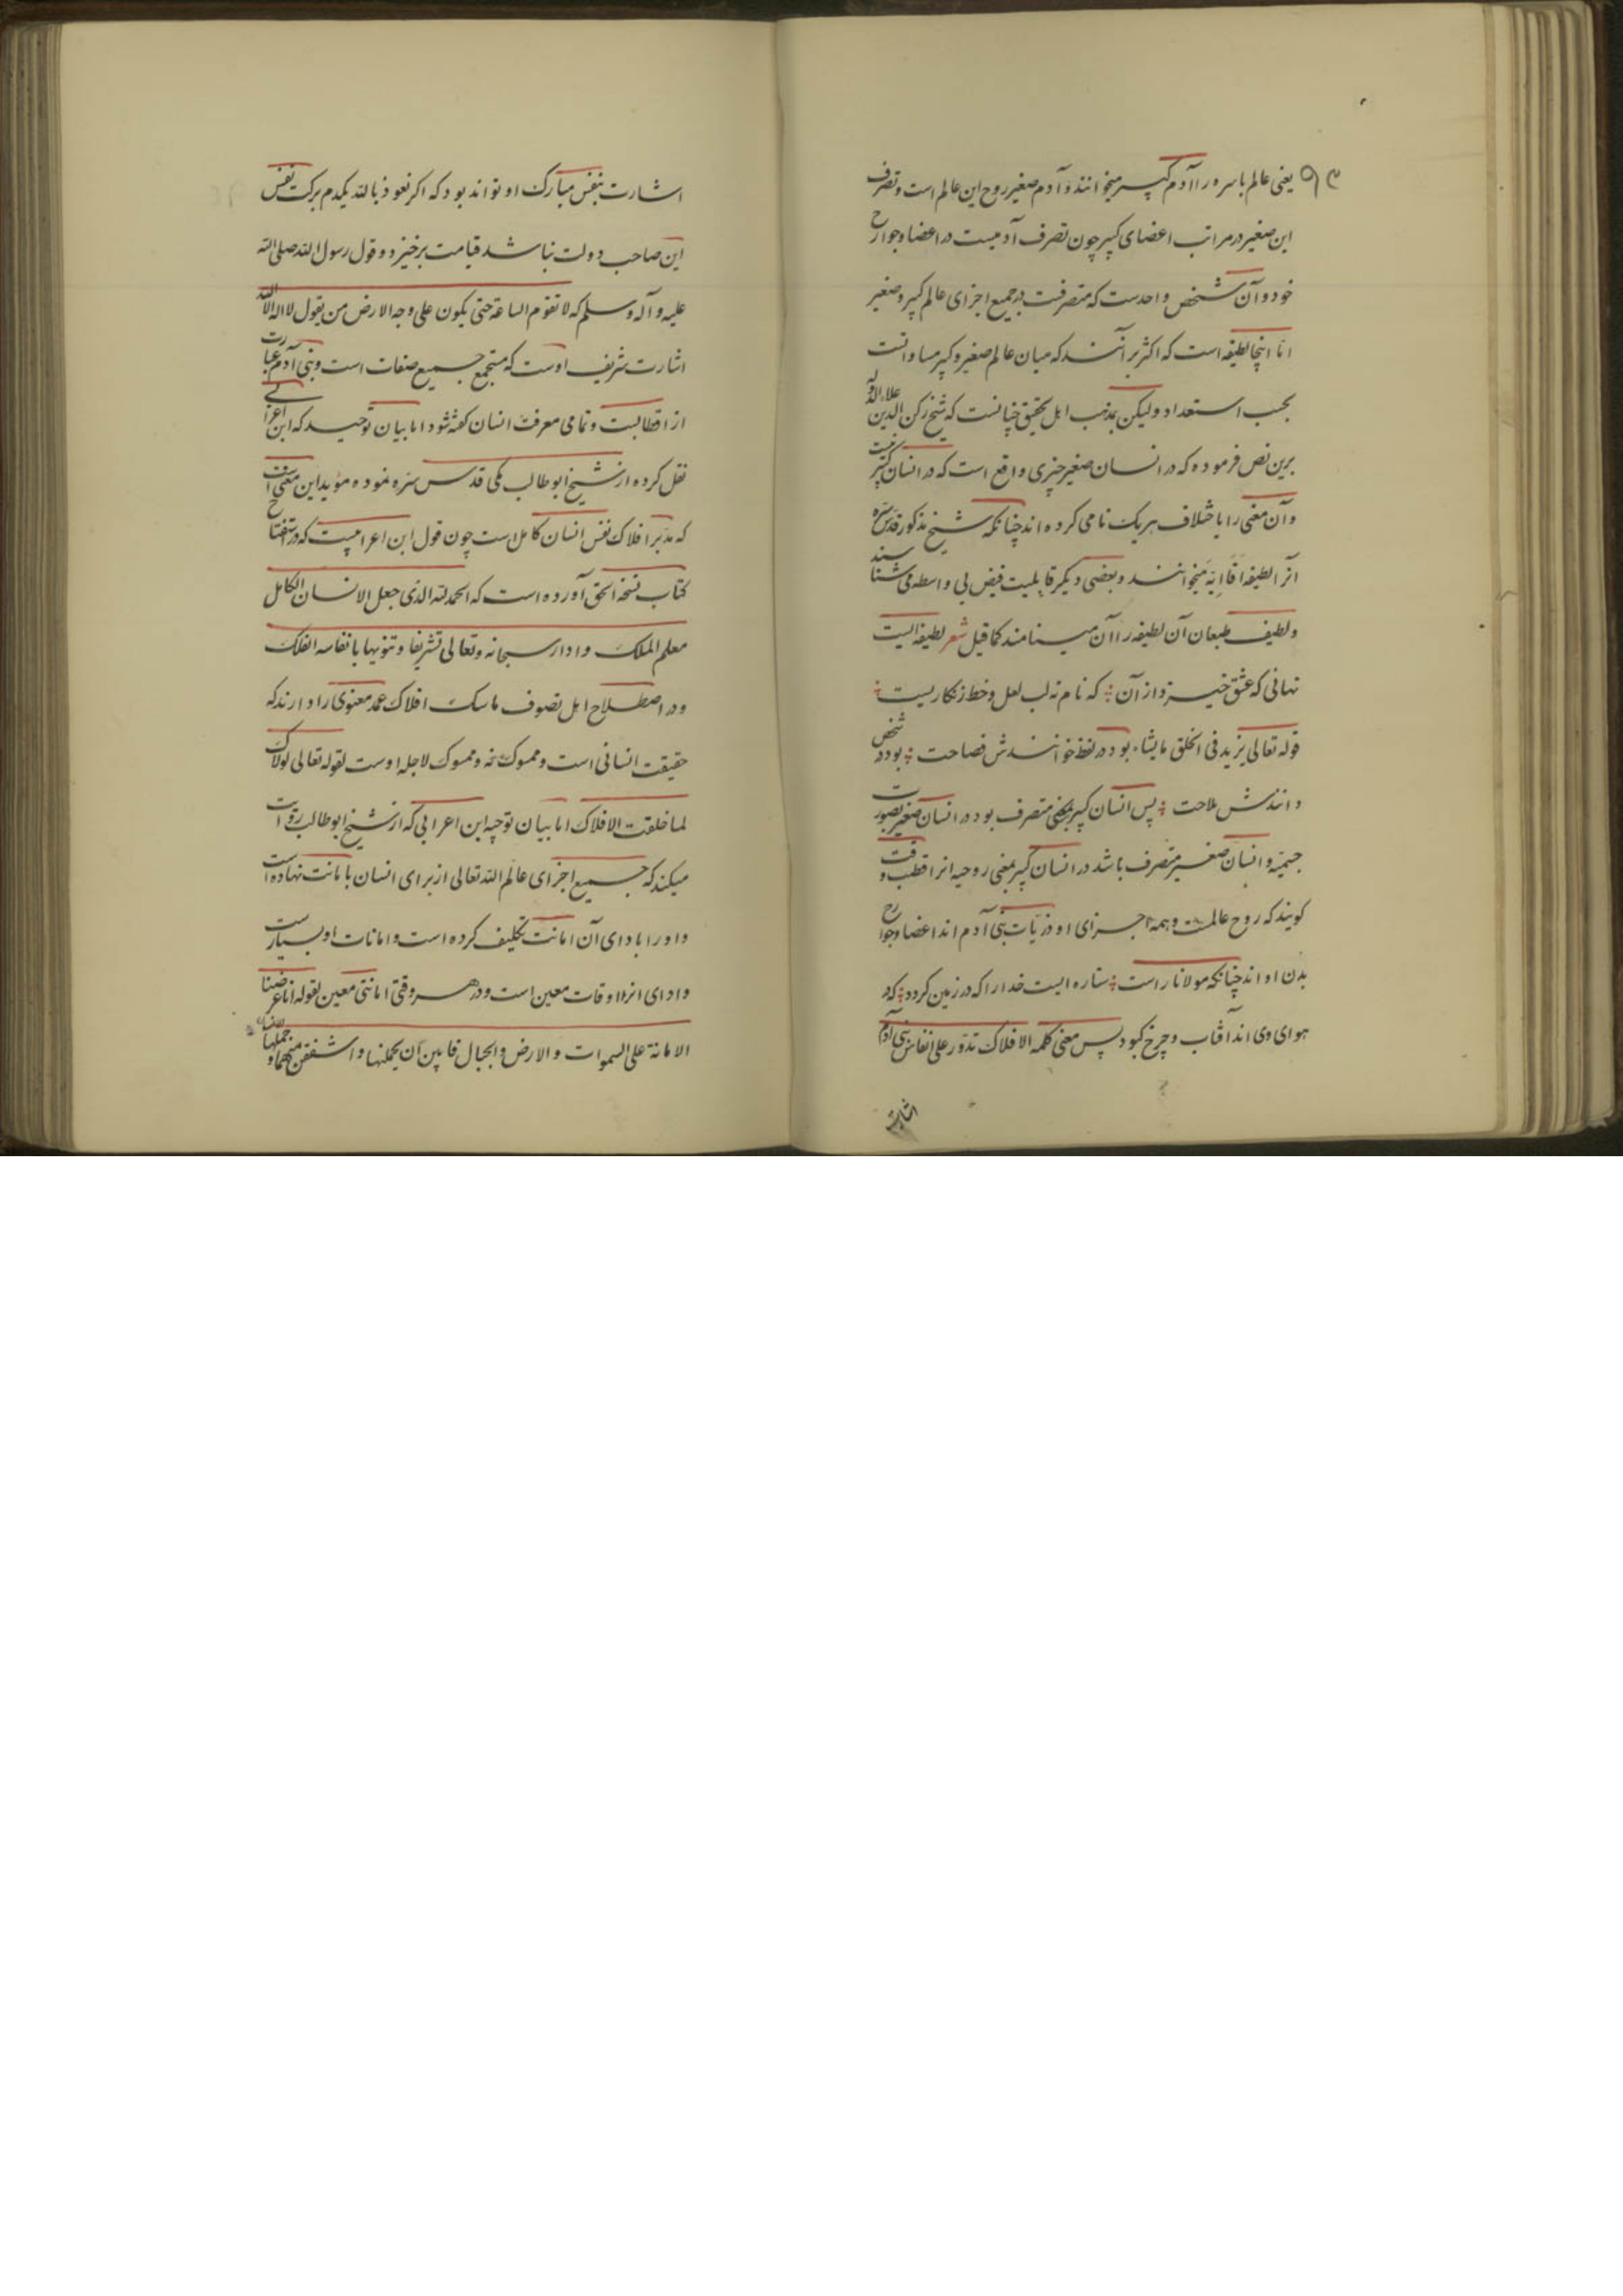 ۹۳ یعنی عالم باسره را آدم کبیر میخوانند و آدم صغیر روح این عالم است و تصرف
این صغیر در مراتب اعضای کبیر چون تصرف آدمیست در اعضا و جوارح
خود و آن شخص واحدست که متصرفست در جمیع اجزای عالم کبیر و صغیر
اما اینجا لطیفه است که اکثر برآنند که میان عالم صغیر و کبیر مساواتست
بحسب استعداد ولیکن بمذهب اهل تحقیق چنانست که شیخ رکن الدین علاءالدوله
برین نص فرموده که در انسان صغیر چیزی واقع است که در انسان کبیر نیست
و آن معنی را باختلاف هریک نامی کرده اند چنانکه شیخ مذکور قدس سره
انرا لطیفه انائیه میخوانند و بعضی دیگر قابلیت فیض بی واسطه می شناسند
و لطیف طبعان آن لطیفه را آن مینامند کما قیل شعر لطیفه ایست
نهانی که عشق خیزد از آن ؛ که نام نه لب لعل و خط زنگاریست ؛
قوله تعالی یزید فی الخلق ما یشاء بود در لفظ خوانندش فصاحت ؛ بود در شخص
دانندش ملاحت ؛ پس انسان کبیر بمعنی متصرف بود در انسان صغیر بصورت
جسمیه و انسان صغیر متصرف باشد در انسان کبیر بمعنی روحیه انرا قطب وقت
گویند که روح عالمست و همه اجزای او ذریات بنی آدم اند اعضا و جوارح
بدن او اند چنانکه مولانا راست ؛ ستاره ایست خدا را که در زمین گردد ؛ که در
هوای وی اند آفتاب و چرخ کبود پس معنی کلمه الافلاک تدور علی انفاس بنی آدم
اشارت
اشارت بنفس مبارک او تواند بود که اگر نعوذ بالله یکدم برکت نفس
این صاحب دولت نباشد قیامت برخیزد و قول رسول الله صلی الله
علیه و آله وسلم که لا تقوم الساعة حتی یکون علی وجه الارض من یقول لا اله الا الله
اشارت شریف اوست که مستجمع جمیع صفات است و بنی آدم عبارت
از اقطابست و تمامی معرفت انسان گفته شود اما بیان توحید که ابن اعرابی
نقل کرده از شیخ ابوطالب مکی قدس سره نموده موید این معنی است
که مدبر افلاک نفس انسان کامل است چون قول ابن اعرابیست که در استفتاح
کتاب نسخة الحق آورده است که الحمد لله الذی جعل الانسان الکامل
معلم الملک و ادار سبحانه و تعالی تشریفا و تنویها بانفاسه الفلک
و در اصطلاح اهل تصوف ماسک افلاک عمد معنوی را دارند که
حقیقت انسانی است و ممسوک نه و ممسوک لاجله اوست لقوله تعالی لولاک
لما خلقت الافلاک اما بیان توجیه ابن اعرابی که از شیخ ابوطالب روایت
میکند که جمیع اجزای عالم الله تعالی از برای انسان بامانت نهاده است
و او را بادای آن امانت تکلیف کرده است و امانات او بسیارست
و ادای انرا اوقات معین است و در هر وقتی امانتی معین لقوله انا عرضنا
الامانة علی السموات والارض والجبال فابین ان یحملنها واشفقن منها وحملها الانسان